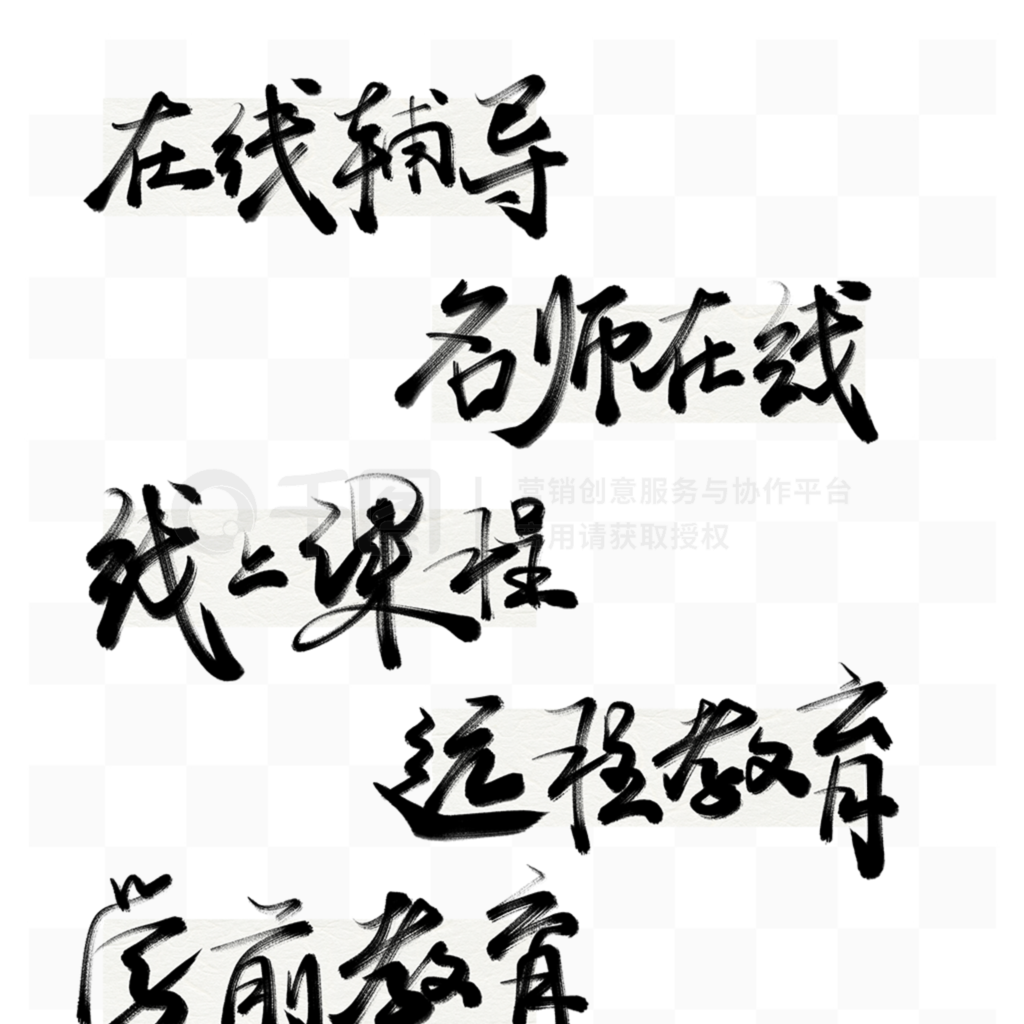 在线辅导
名师在线
千图 | 营销创意服务与协作平台
用请获取授权
线上课程
远程教育
学前教育